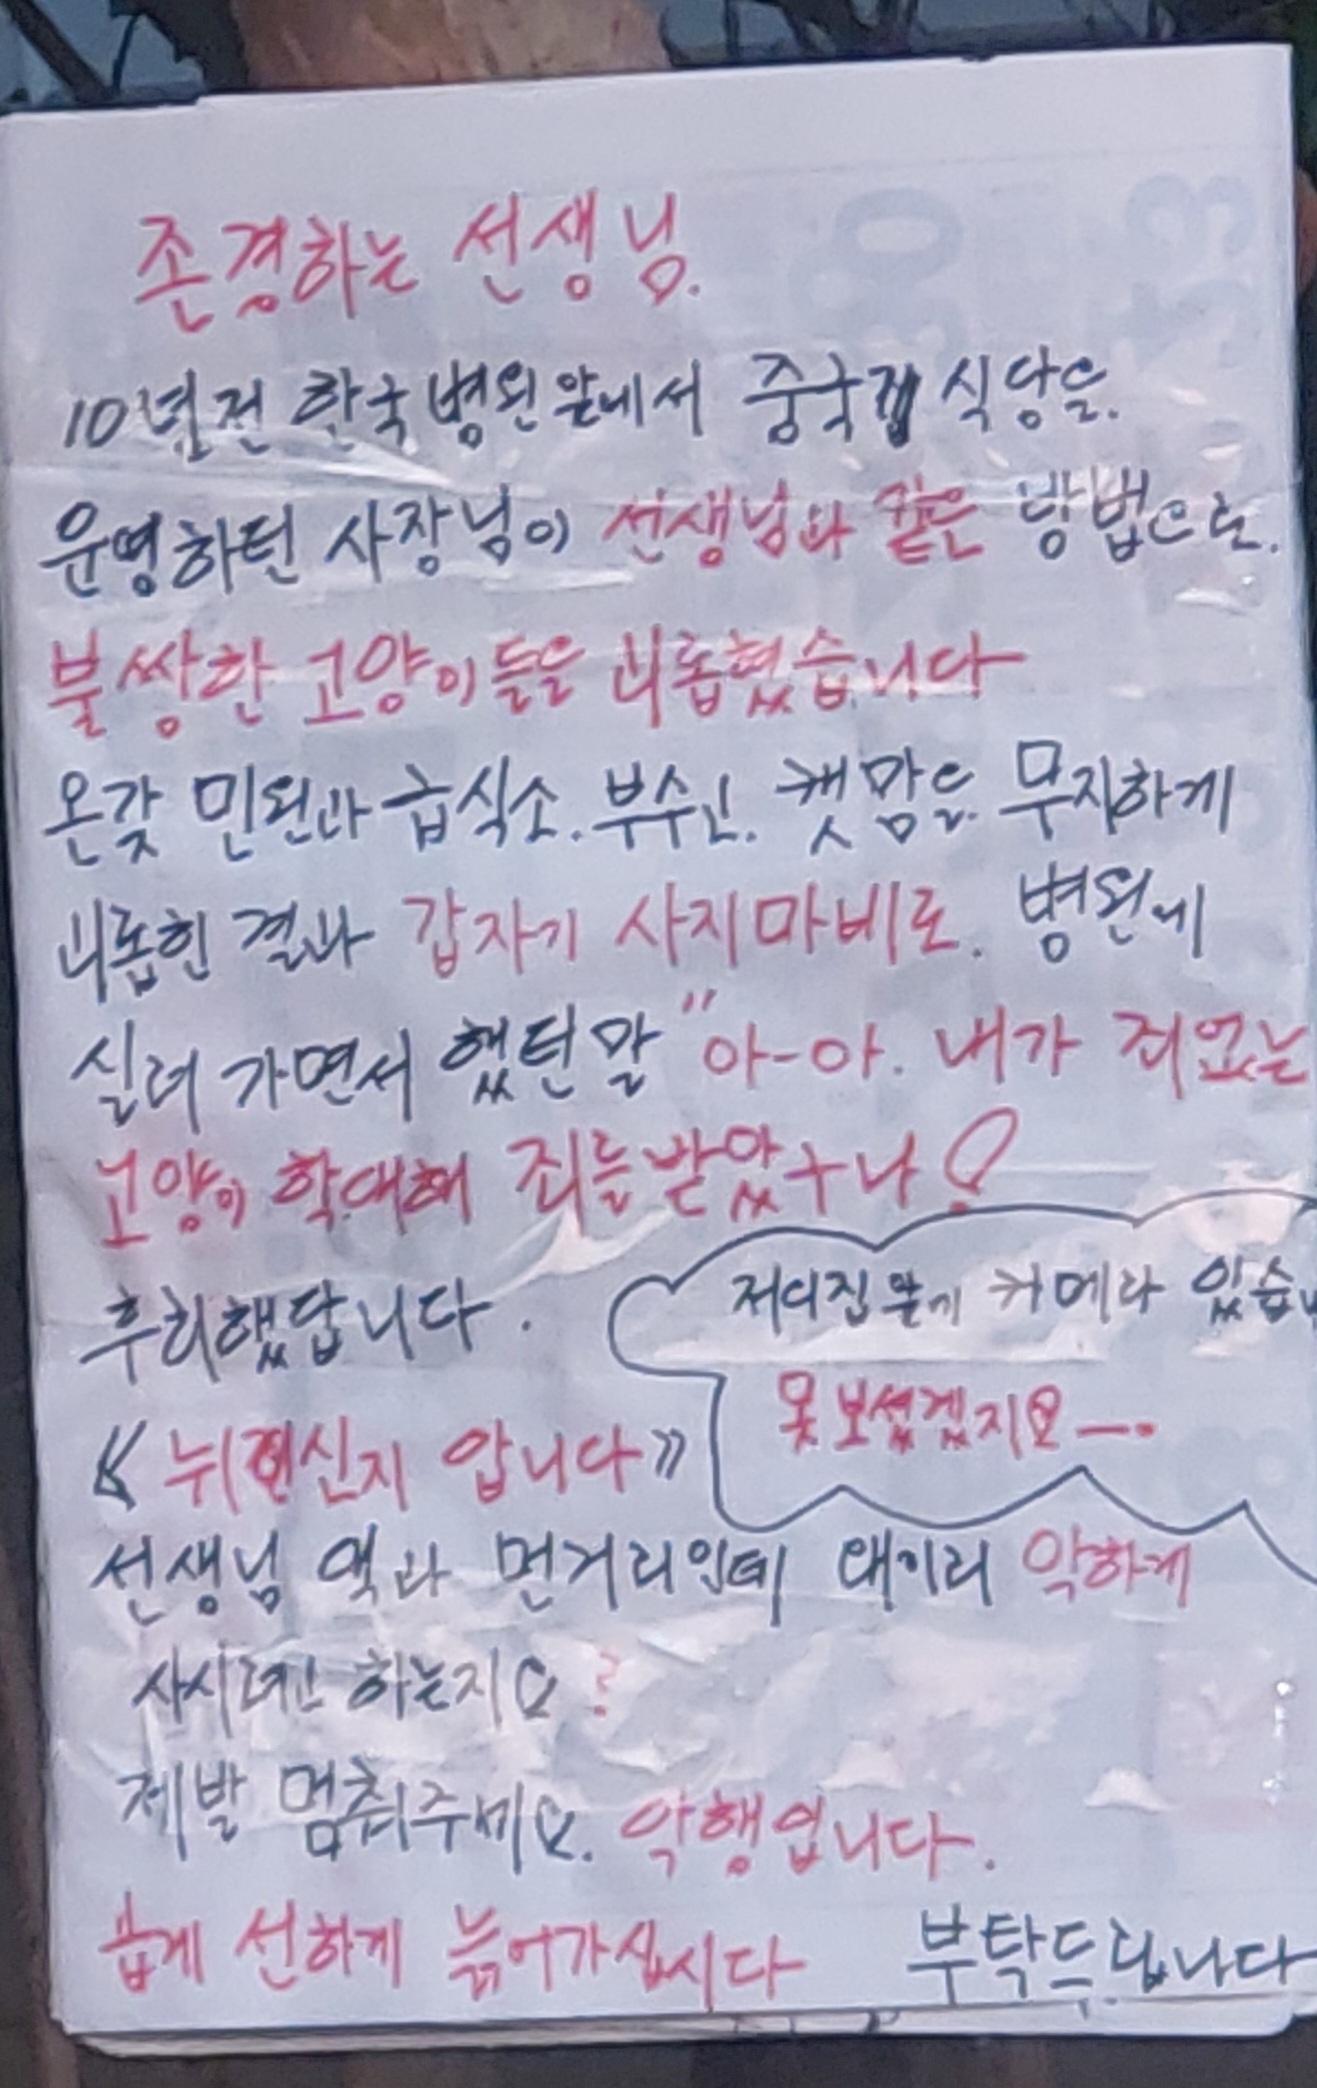 존경하는 선생님.
10년전 한국병원앞에서 중국집 식당을.
운영하던 사장님이 선생님과 같은 방법으로.
불쌍한 고양이들을 괴롭혔습니다
온갖 민원과 급식소. 부수고. 캣맘을 무지하게
괴롭힌 결과 갑자기 사지마비로. 병원에
실려가면서 했던말 "아-아. 내가 죄없는
고양이 학대해 죄를받았구나!
후회했답니다.
저의집앞에 카메라 있습
못보셨겠지요—.
《뉘신지 압니다》
선생님 댁과 먼거리인데
악하게
사시려고 하는지요?
제발 멈춰주세요. 악행입니다.
곱게 선하게 늙어가십시다 부탁드립니다